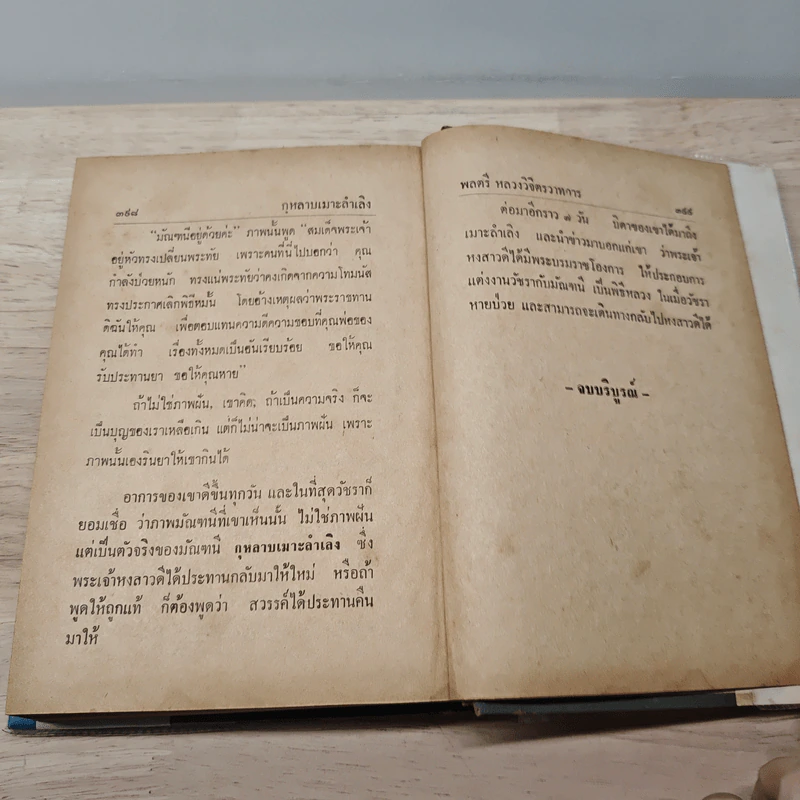 ๓๙๘ กุหลาบเมาะลำเลิง
"มัณฑนีอยู่ด้วยค่ะ" ภาพนั้นพูด "สมเด็จพระเจ้า
อยู่หัวทรงเปลี่ยนพระทัย เพราะคนที่นี่ไปบอกว่า คุณ
กำลังป่วยหนัก ทรงแน่พระทัยว่าคงเกิดจากความโทมนัส
ทรงประกาศเลิกพิธีหมั้น โดยอ้างเหตุผลว่าพระราชทาน
ดิฉันให้คุณ เพื่อตอบแทนความดีความชอบที่คุณพ่อของ
คุณได้ทำ เรื่องทั้งหมดเป็นอันเรียบร้อย ขอให้คุณ
รับประทานยา ขอให้คุณหาย"
ถ้าไม่ใช่ภาพฝัน, เขาคิด; ถ้าเป็นความจริง ก็จะ
เป็นบุญของเราเหลือเกิน แต่ก็ไม่น่าจะเป็นภาพฝัน เพราะ
ภาพนั้นเองรินยาให้เขากินได้
อาการของเขาดีขึ้นทุกวัน และในที่สุดวัชราก็
ยอมเชื่อ ว่าภาพมัณฑนีที่เขาเห็นนั้น ไม่ใช่ภาพฝัน
แต่เป็นตัวจริงของมัณฑนี กุหลาบเมาะลำเลิง ซึ่ง
พระเจ้าหงสาวดีได้ประทานกลับมาให้ใหม่ หรือถ้า
พูดให้ถูกแท้ ก็ต้องพูดว่า สวรรค์ได้ประทานคืน
มาให้
พลตรี หลวงวิจิตรวาทการ ๓๙๙
ต่อมาอีกราว ๗ วัน บิดาของเขาได้มาถึง
เมาะลำเลิง และนำข่าวมาบอกแก่เขา ว่าพระเจ้า
หงสาวดีได้มีพระบรมราชโองการ ให้ประกอบการ
แต่งงานวัชรากับมัณฑนี เป็นพิธีหลวง ในเมื่อวัชรา
หายป่วย และสามารถจะเดินทางกลับไปหงสาวดีได้
– จบบริบูรณ์ –